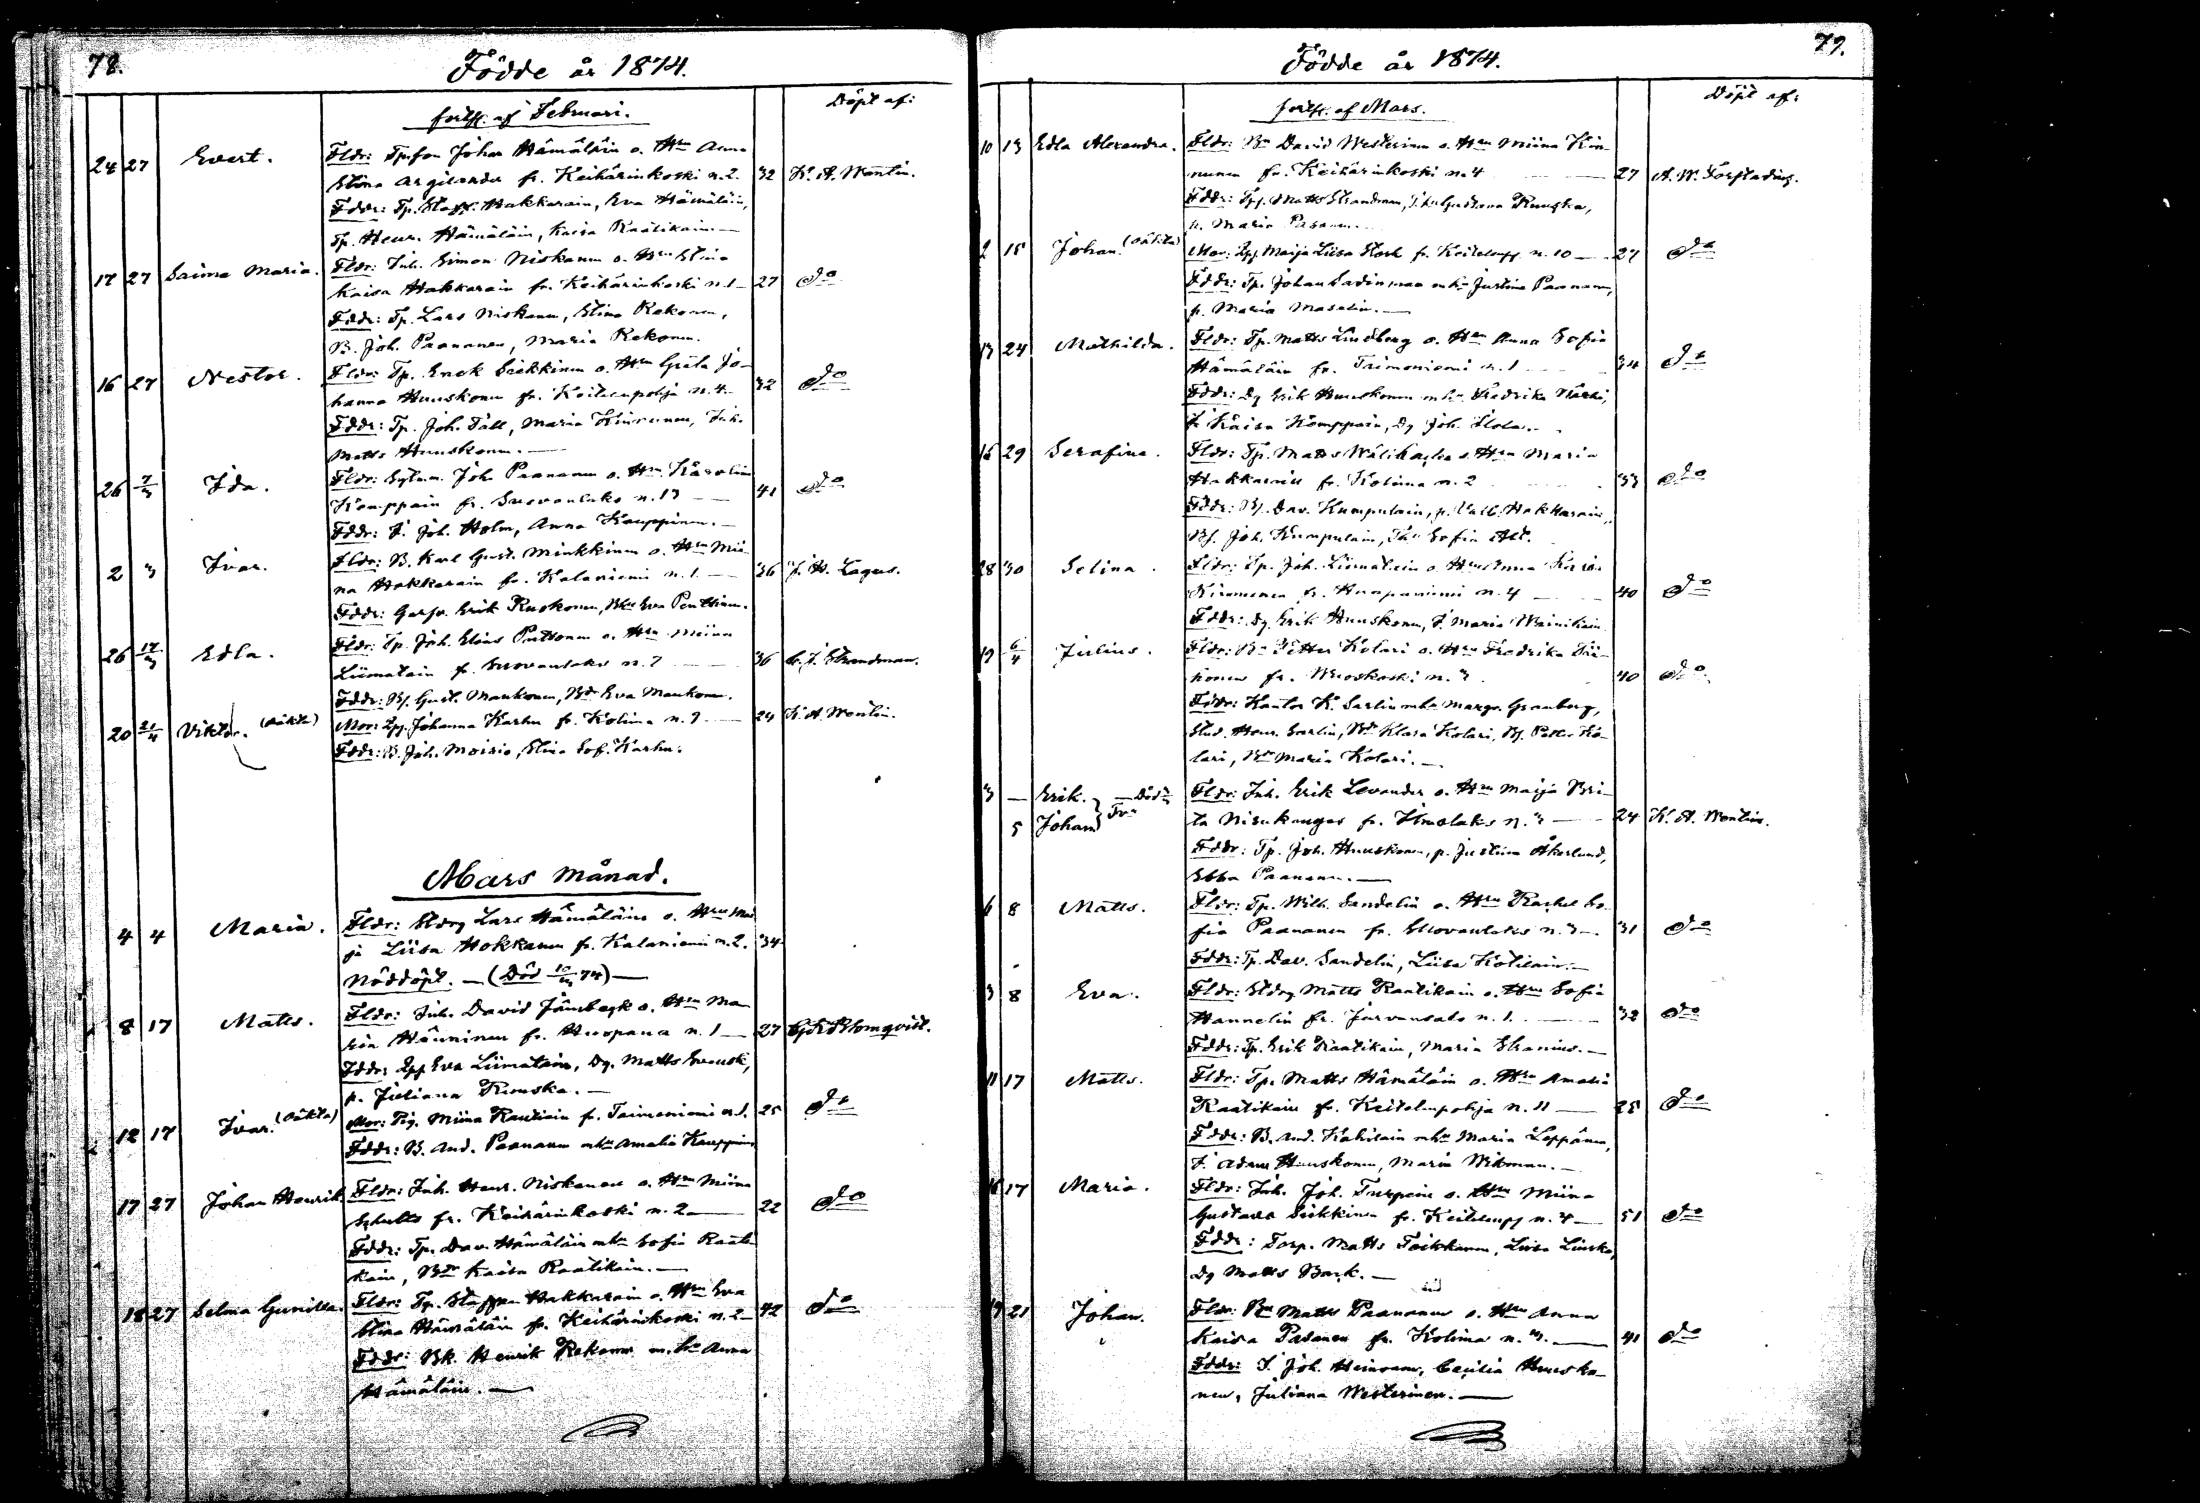 78.
Födde år 1874.
fortss. af Februari.
Döpt af:
24 27 Evert. Fldr: Tpson Johan Hämäläin o. Hru Anna
Stina Argilander fr. Keihärinkoski n. 2. 32 K. A. Wontin.
Fddr: Tp. Staff. Hakkarain, Eva Hämäläin,
Tp. Henr. Hämäläin, Kaisa Raatikain. —
17 27 Saima Maria. Fldr: Inh. Simon Niskanen o. Hru Stina
Kaisa Hakkarain fr. Keihärinkoski n. 1 — 27 do
Fddr: Tp. Lars Niskanen, Stina Kekonen,
B. Joh. Paananen, Maria Kekonen.
16 27 Nestor. Fldr: Tp. Erick Siekkinen o. Hru Greta Jo-
hanna Huuskonen fr. Keitelenpohja n. 4 — 32 do
Fddr: Tp. Joh. Fält, Maria Kinnunen, Inh.
Matts Huuskonen. —
26 7/3 Ida. Fldr: Sytn.m. Joh. Paananen o. Hru Karolina
Kauppain fr. Suovanlaks n. 13 — 41 do
Fddr: I. Joh. Holm, Anna Kauppinen. —
2 3 Ivar. Fldr: B. Karl Gust. Minkkinen o. Hru Mii-
na Hakkarain fr. Kalaniemi n. 1. — 36 J. H. Lagus.
Fddr: Erik Ruokonen, Eva Penttinen.
26 17/3 Edla. Fldr: Tp. Joh. Elias Puttonen o. Hru Miina
Liimatain fr. Suovanlaks n. 7 — 36 C. J. Strandman.
Fddr: Bj. Gust. Maukonen, Bdr Eva Maukonen.
20 21/4 Viktor. (oäkta) Mor: Johanna Karhu fr. Kolima n. 9 — 24 K. A. Wontin.
Fddr: B. Joh. Moisio, Stina Sof. Karhu.
Mars månad.
4 4 Maria. Fldr: Sldrg Lars Hämäläin o. Hru Mai-
ja Liisa Hokkanen fr. Kalaniemi n. 2. 34
Nöddöpt. — (Död 10/3 74) —
8 17 Matts. Fldr: Inh. David Jämbäck o. Hru Ma-
ria Hänninen fr. Huopana n. 1 — 27 G. K. Blomqvist.
Fddr: Eva Liimatain, Dg. Matts Svensk,
p. Juliana Ruuska. —
12 17 Ivar. (oäkta) Mor: Pig. Miina Rautiain fr. Taimoniemi n. 1. 25 do
Fddr: B. And. Paananen mhu Amalia Kauppinen
17 27 Johan Henrik. Fldr: Inh. Henr. Niskanen o. Hru Miina
Schults fr. Keihärinkoski n. 2 — 22 do
Fddr: Tp. Dav. Hämäläin mhu Sofia Raati-
kain, Bdr Kaisa Raatikain. —
18 27 Selma Gunilla. Fldr: Tp. Staffan Hakkarain o. Hru Eva
Stina Hämäläin fr. Keihärinkoski n. 2 — 42 do
Fddr: Bk. Henrik Kekonen m. hu Anna
Hämäläin. —
79.
Födde år 1874.
fortss. af Mars.
Döpt af:
10 13 Edla Alexandra. Fldr: Bn David Westerinen o. Hru Miina Kin-
nunen fr. Keihärinkoski n. 4 — 27 A. W. Forstadius.
Fddr: Matts Strandman, Gustava Ruuska,
p. Maria Pasanen.
2 15 Johan. (oäkta) Mor: Maija Liisa Stark fr. Keitelenpj n. 10 — 27 do
Fddr: Tp. Johan Sadinmaa mhu Justina Paananen,
p. Maria Maselin. —
13 24 Mathilda. Fldr: Tp. Matts Lindberg o. Hru Anna Sofia
Hämäläin fr. Taimoniemi n. 1 34 do
Fddr: Dg Erik Huuskonen mhu Fredrika Närhi,
I. Kaisa Kömppäin, Dg Joh. Stolar.
16 29 Serafina. Fldr: Tp. Matts o. Hru Maria
Hakkarain fr. Kolima n. 2 33 do
Fddr: Bj. Dav. Kumpulain, p. Hakkarain,
Bj. Joh. Kumpulain, Sofia Alt.
28 30 Selina. Fldr: Tp. Joh. Liimatain o. Hru Anna Karin
Kinnunen fr. Huopaniemi n. 4 — 40 do
Fddr: Dg. Erik Huuskonen, I. Maria Wainikain.
19 6/4 Julius. Fldr: Bn Petter Kolari o. Hru Fredrika Tii-
honen fr. Wuoskoski n. 3. 40 do
Fddr: Kantor K. Sarlin mhu Margr. Granberg,
Stud. Henr. Sarlin, Bdr Klara Kolari, Bj. Petter Ko-
lari, Bdr Maria Kolari. —
3 — Erik. } — Död
5 Johan } Tvi. Fldr: Inh. Erik Levander o. Hru Maija Bri-
ta Niinikangas fr. Ilmolaks n. 3 — 24 K. A. Wontin.
Fddr: Tp. Joh. Huuskonen, p. Justina Åkerlund,
Ebba Paananen. —
6 8 Matts. Fldr: Tp. Wilh. Sandelin o. Hru Rachel So-
fia Paananen fr. Suovanlaks n. 3 — 31 do
Fddr: Tp. Dav. Sandelin, Liisa Kotilain. —
3 8 Eva. Fldr: Sldrg Matts Raatikain o. Hru Sofia
Hannelin fr. Jurvansalo n. 1. — 32 do
Fddr: Tp. Erik Raatikain, Maria Stranius. —
11 17 Matts. Fldr: Tp. Matts Hämäläin o. Hru Amalia
Raatikain fr. Keitelenpohja n. 11 — 25 do
Fddr: B. And. Kahilain mhu Maria Leppänen,
I. Adam Huuskonen, Maria Wikman. —
16 17 Maria. Fldr: Inh. Joh. Turpein o. Hru Miina
Gustava Siekkinen fr. Keitelenpj n. 4 — 51 do
Fddr: Torp. Matts Toikkanen, Liisa Linska,
Dg Matts Back. —
19 21 Johan. Fldr: Bn Matts Paananen o. Hru Anna
Kaisa Pasanen fr. Kolima n. 3. — 41 do
Fddr: I. Joh. Heinonen, Cecilia Huusko-
nen, Juliana Westerinen. —